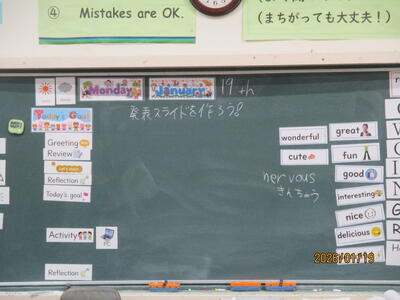 ④ Mistakes are OK.
(まちがっても大丈夫！)
Monday January 19th
Today's Goal
発表スライドを作ろう!
Greeting
Review
Let's start
Reflection
Today's goal
Activity
Reflection
wonderful
great
cute
fun
nervous
きんちょう
good
interesting
nice
delicious
2026/01/19